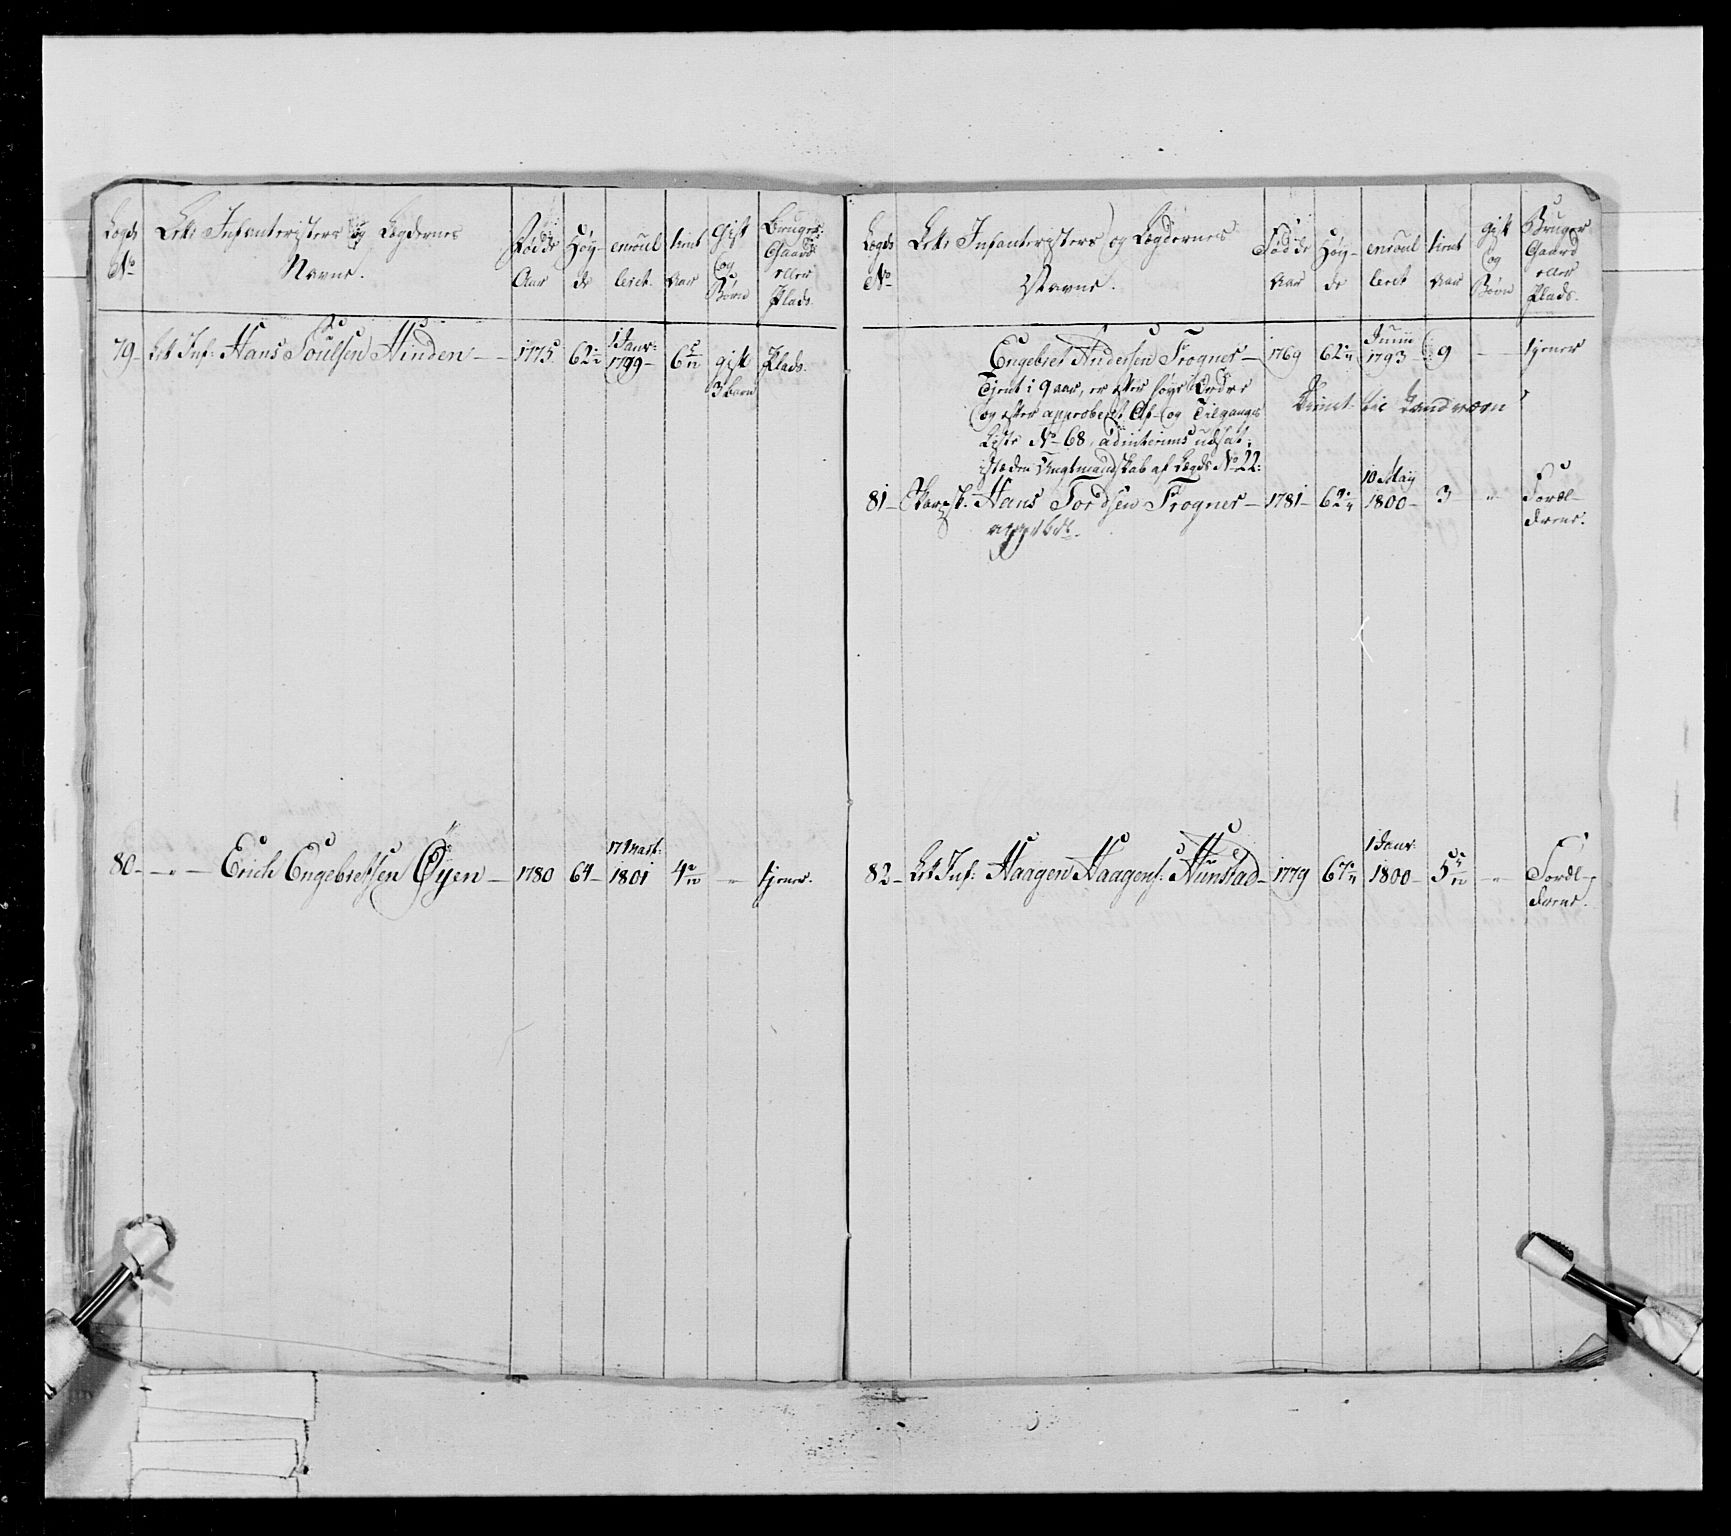 Lægds No
Lette Infanteristers og Lægdernes Navne.
Fødde Aar
Høyde
enroulleret
tient Aar
Gift og Børn
Bruger Gaard eller Plads
79 – Let Inf: Hans Poulsen Hinden – 1775 62 1 Janr: 1799 – 6 5/12 gift 3 børn Plads.
80 – „ – Erich Engebretsen Øyen – 1780 64 – 17 Mart: 1801 4 „ tjener.
Lægds No
Lette Infanteristers og Lægdernes Navne.
Fødde Aar
Høyde
enroullert
tient Aar
gift og Børn
Bruger Gaard eller Plads.
Engebret Andersen Frogner – 1769 62 Junii 1793 9 – tjener
Tjent i 9 aar, er efter høye Ordre
og efter approberet Af- og Tilgangs
Liste No 68, ad interims udsat,
isteden Ungtmandskab af Lægds No 22:
tient til Landværn
81 – Skarpsk. Hans Tordsen Frogner – 1781 – 62 10 May 1800 – 3 – „ Foræl-
drene.
82 – Let Inf: Haagen Haagens: Hunstad – 1779 67 1 Janr: 1800 – 5 5/12 „ Foræl-
drene.